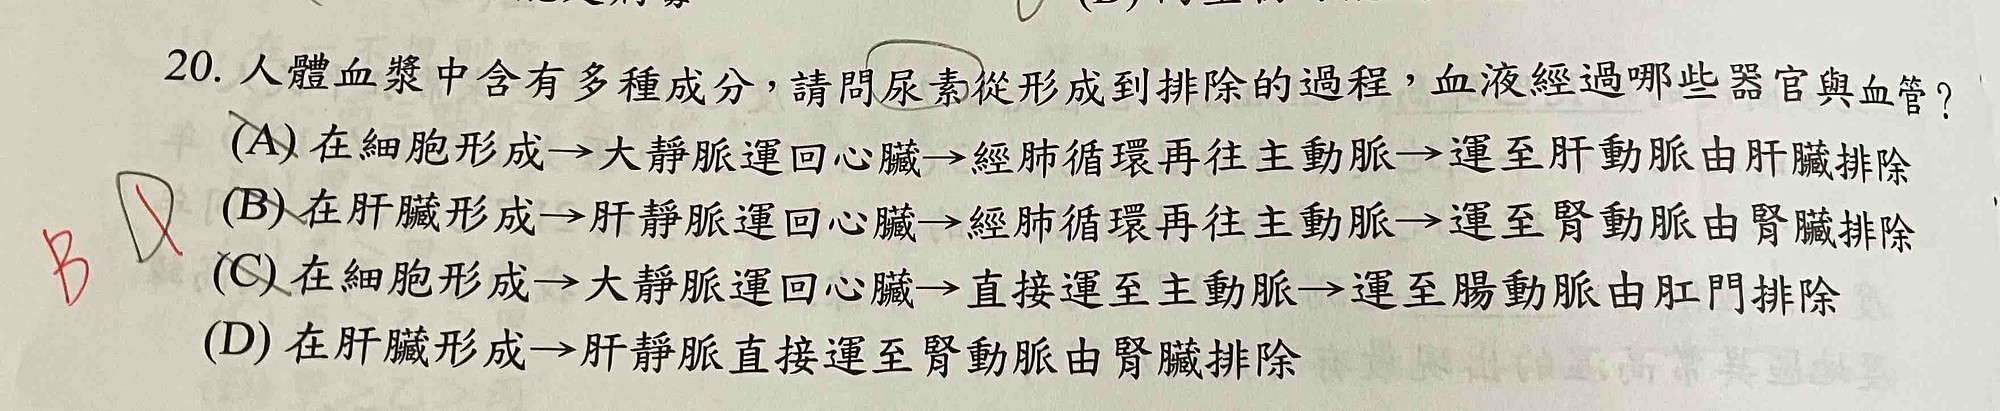 20. 人體血漿中含有多種成分，請問尿素從形成到排除的過程，血液經過哪些器官與血管？
(A) 在細胞形成→大靜脈運回心臟→經肺循環再往主動脈→運至肝動脈由肝臟排除
(B) 在肝臟形成→肝靜脈運回心臟→經肺循環再往主動脈→運至腎動脈由腎臟排除
B
(C) 在細胞形成→大靜脈運回心臟→直接運至主動脈→運至腸動脈由肛門排除
(D) 在肝臟形成→肝靜脈直接運至腎動脈由腎臟排除